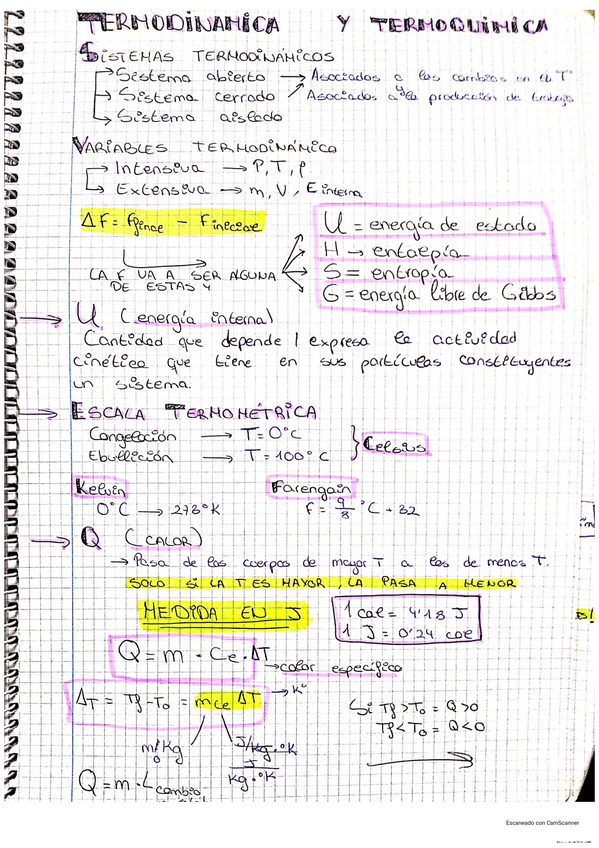 TERMODINAMICA Y TERMOQUIMICA
SISTEMAS TERMODINÁMICOS
Sistema abierto → Asociados a los cambios en el T°
Sistema cerrado ↗ Asociados a la producción de trabajo
Sistema aislado
VARIABLES TERMODINÁMICO
Intensiva → P, T, ρ
Extensiva → m, V, E interna
ΔF = Ffinal - Finicial
U = energía de estado
H → entalpía
S = entropía
G = energía libre de Gibbs
LA F VA A SER ALGUNA
DE ESTAS 4
→ U (energía interna)
Cantidad que depende / expresa la actividad
cinética que tiene en sus partículas constituyentes
un sistema.
→ ESCALA TERMOMÉTRICA
Congelación → T = 0°C
Ebullición → T = 100°C } Celsius
Kelvin Farengain
0°C → 273°K F = 9/8 °C + 32
→ Q (CALOR)
→ Pasa de los cuerpos de mayor T a los de menos T.
SOLO SI LA T ES MAYOR, LA PASA A MENOR
MEDIDA EN J
1 cal = 4'18 J
1 J = 0'24 cal
Q = m · Ce · ΔT
→ calor específico
ΔT = Tf - T0 = m ce ΔT → K
Si Tf > T0 = Q > 0
Tf < T0 = Q < 0
m/Kg
J
Kg · °K
Q = m · L cambio
Escaneado con CamScanner